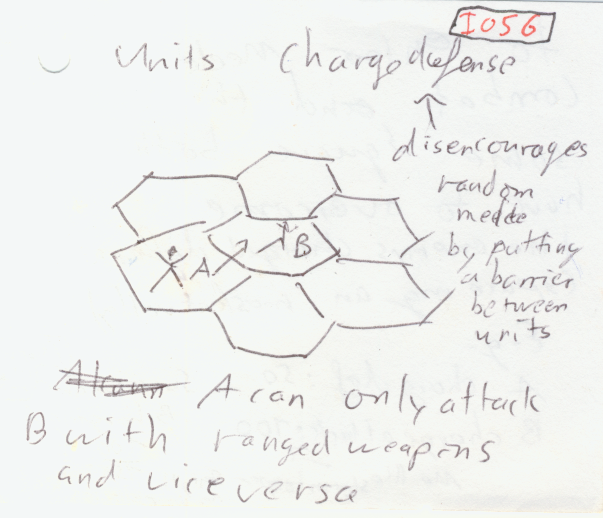 I056
Units Chargedefense
disencourages
random
melee
by putting
a barrier
between
units
A
B
A can only attack
B with ranged weapons
and vice versa